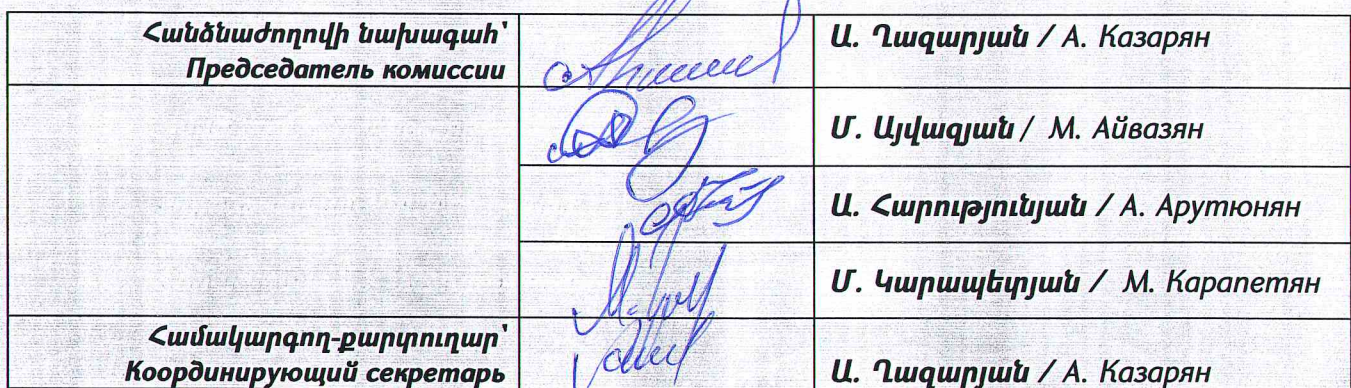 Հանձնաժողովի նախագահ՝
Председатель комиссии
Ա. Ղազարյան / А. Казарян
Մ. Այվազյան / М. Айвазян
Ա. Հարությունյան / А. Арутюнян
Մ. Կարապետյան / М. Карапетян
Համակարգող-քարտուղար՝
Координирующий секретарь
Ա. Ղազարյան / А. Казарян